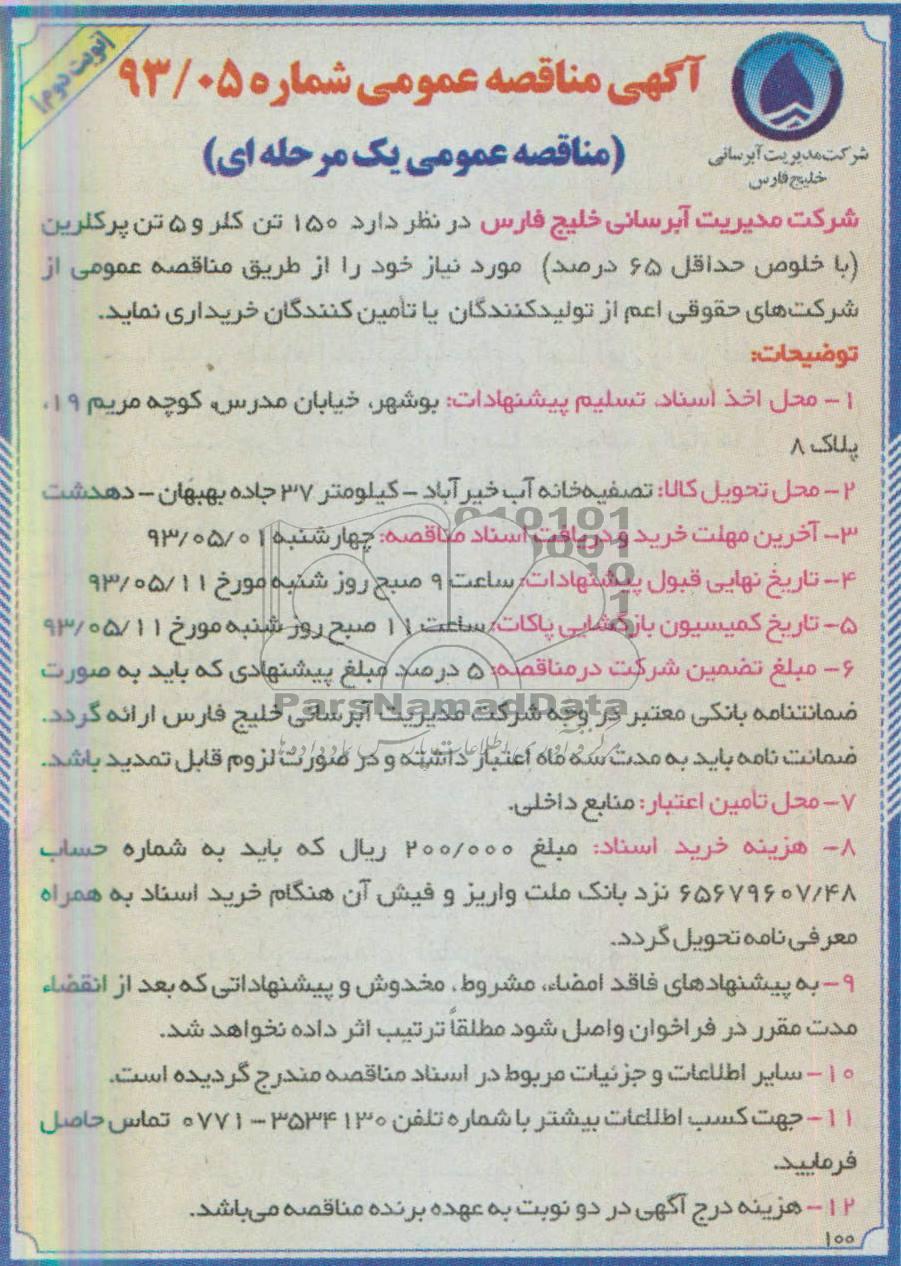 نوبت دوم
آگهی مناقصه عمومی شماره ۹۳/۰۵
(مناقصه عمومی یک مرحله ای)
شرکت مدیریت آبرسانی
خلیج فارس
شرکت مدیریت آبرسانی خلیج فارس در نظر دارد ۱۵۰ تن کلر و ۵ تن پرکلرین
(با خلوص حداقل ۶۵ درصد) مورد نیاز خود را از طریق مناقصه عمومی از
شرکت‌های حقوقی اعم از تولیدکنندگان یا تأمین کنندگان خریداری نماید.
توضیحات:
۱- محل اخذ اسناد، تسلیم پیشنهادات: بوشهر، خیابان مدرس، کوچه مریم ۱۹،
پلاک ۸
۲- محل تحویل کالا: تصفیه‌خانه آب خیرآباد - کیلومتر ۳۷ جاده بهبهان - دهدشت
۳- آخرین مهلت خرید و دریافت اسناد مناقصه: چهارشنبه ۹۳/۰۵/۰۱
۴- تاریخ نهایی قبول پیشنهادات: ساعت ۹ صبح روز شنبه مورخ ۹۳/۰۵/۱۱
۵- تاریخ کمیسیون بازگشایی پاکات: ساعت ۱۱ صبح روز شنبه مورخ ۹۳/۰۵/۱۱
۶- مبلغ تضمین شرکت در مناقصه: ۵ درصد مبلغ پیشنهادی که باید به صورت
ضمانتنامه بانکی معتبر در وجه شرکت مدیریت آبرسانی خلیج فارس ارائه گردد.
ParsNamadData
ضمانت نامه باید به مدت سه ماه اعتبار داشته و در صورت لزوم قابل تمدید باشد.
۷- محل تأمین اعتبار: منابع داخلی.
۸- هزینه خرید اسناد: مبلغ ۲۰۰/۰۰۰ ریال که باید به شماره حساب
۶۵۶۷۹۶۰۷/۴۸ نزد بانک ملت واریز و فیش آن هنگام خرید اسناد به همراه
معرفی نامه تحویل گردد.
۹- به پیشنهادهای فاقد امضاء، مشروط، مخدوش و پیشنهاداتی که بعد از انقضاء
مدت مقرر در فراخوان واصل شود مطلقاً ترتیب اثر داده نخواهد شد.
۱۰- سایر اطلاعات و جزئیات مربوط در اسناد مناقصه مندرج گردیده است.
۱۱- جهت کسب اطلاعات بیشتر با شماره تلفن ۳۵۳۴۱۳۰ - ۰۷۷۱ تماس حاصل
فرمایید.
۱۲- هزینه درج آگهی در دو نوبت به عهده برنده مناقصه می‌باشد.
۱۰۰